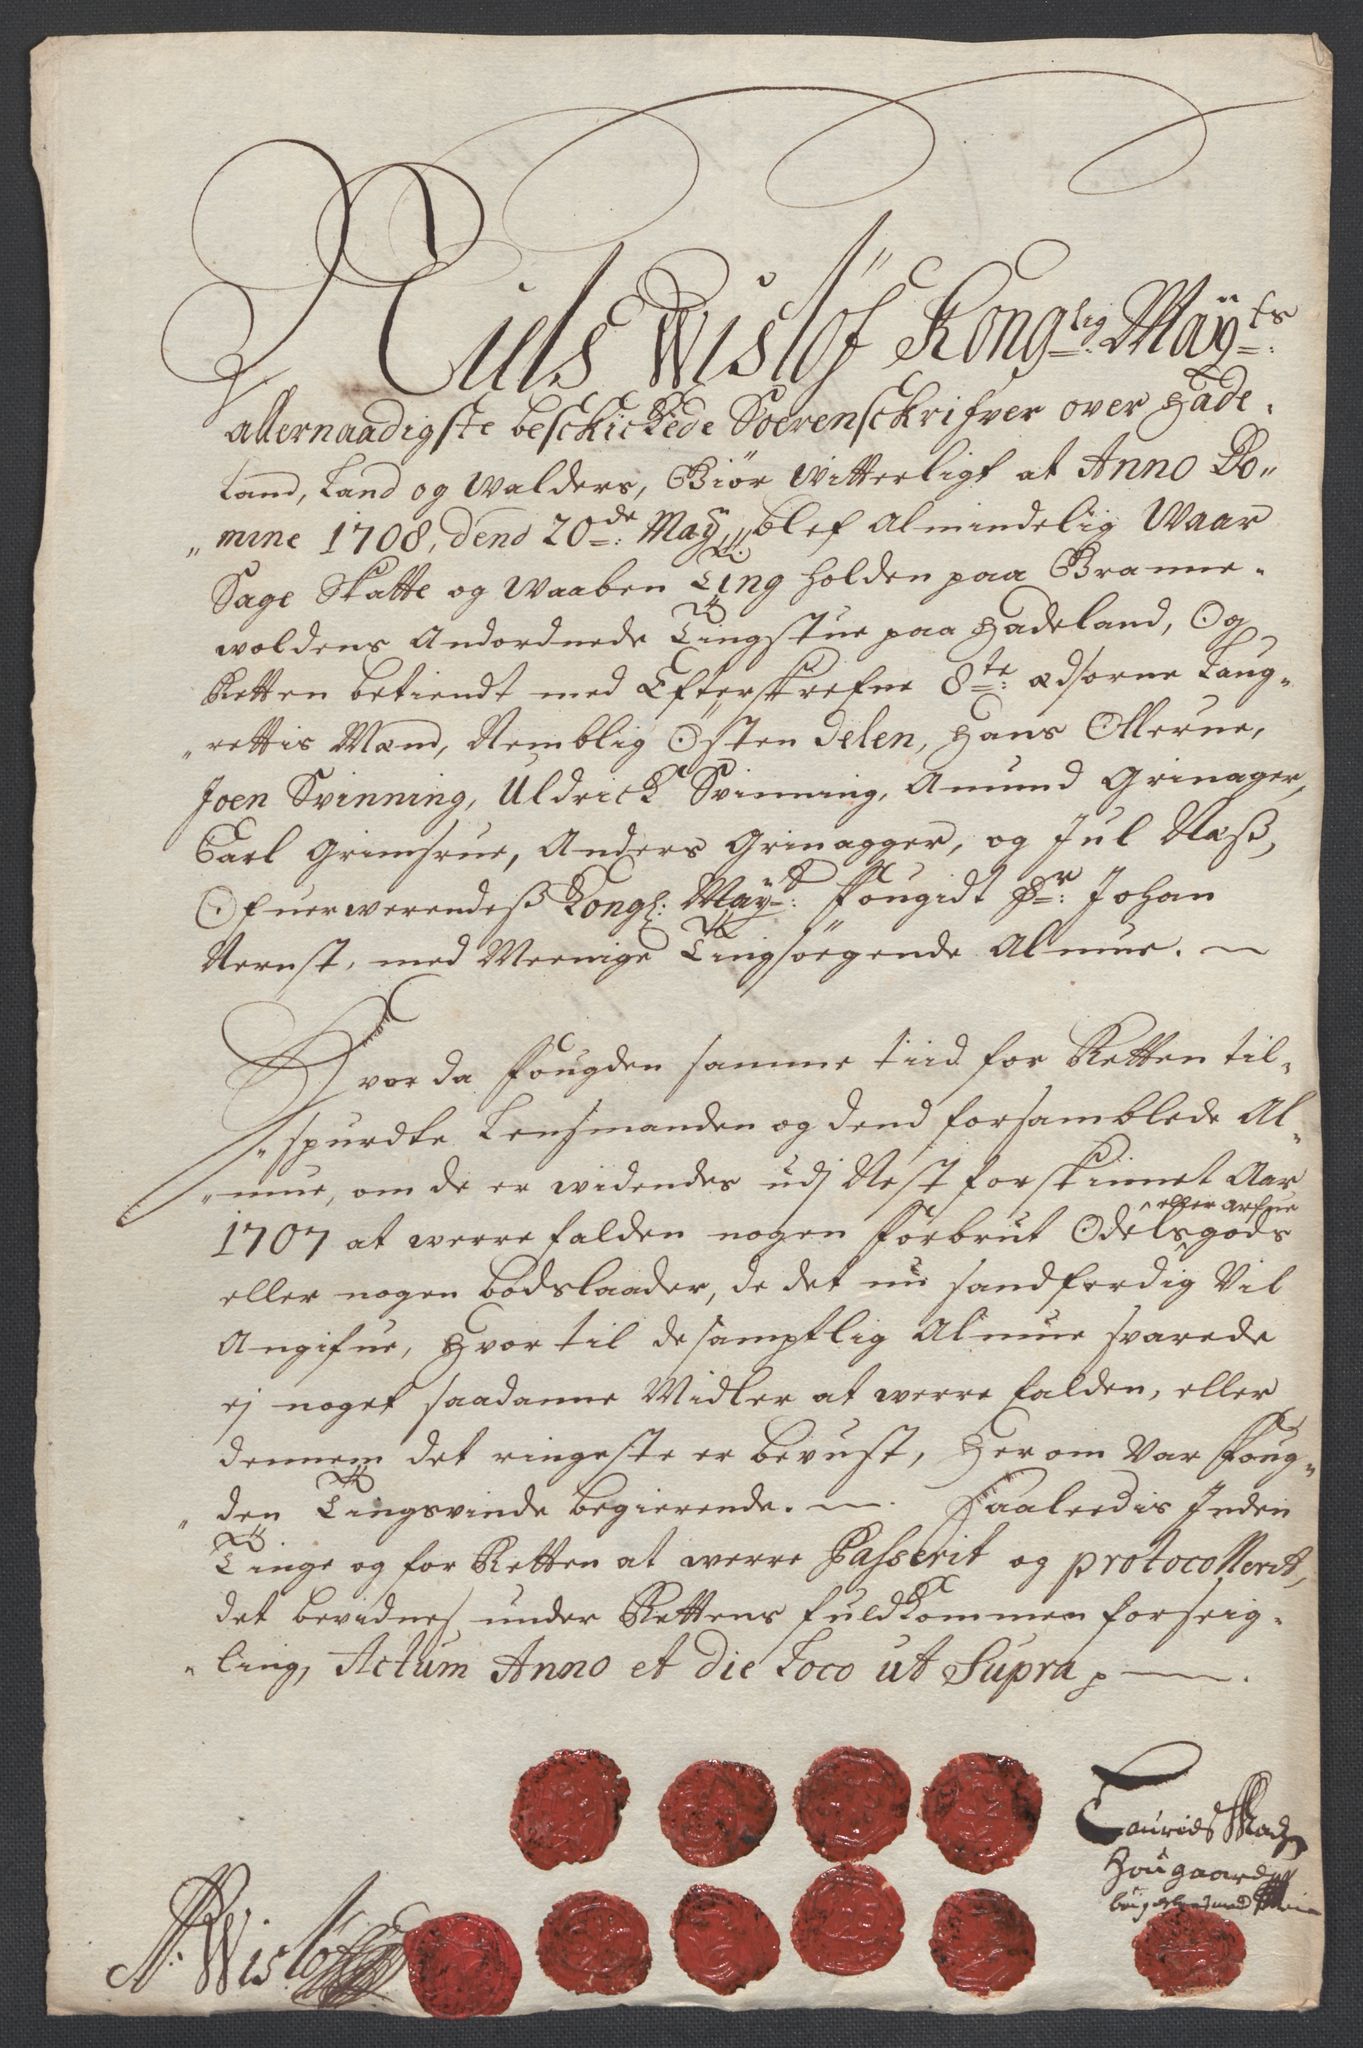 Niels Wislöf Konglig: Mäyts:
allernaadigste beschickede Soerenschrifver over Hade-
land, Land og Walders, Giör Witterligt at Anno Do-
mine 1708, dend 20de: Maÿ, blef Almindelig Waar
Sage Skatte og Waaben Ting holden paa Branne-
woldens Andordnede Tingstue paa Hadeland, Og
Retten betiendt med Efterskrefne 8te: Edsorne Laug-
rettis Mænd, Nemblig Østen Delen, Hans Ollerne,
Joen Svinning, Uldrick Svinning, Amund Grinager,
Carl Grimsrue, Anders Grinagger, og Jul Næss,
Ofuerwerendess Kongl: Maÿts: Fougidt Hr: Johan
Nernst, med Meenige Tingsöegende Almue. —
Hvor da Fougden samme tiid for Retten til-
spurdte Lensmanden og dend forsamblede Al-
mue, om de er widendes udj Nest forskinnet Aar
eller arfue
1707 at werre falden nogen Förbrut Odelsgods
eller nogen bödslaader, de det nu sandferdig Vil
Angifue, Hvor til de samptlig Almue svarede
ej noget saadanne Midler at werre falden, eller
dennem det ringeste er bevust, Her om Var Foug-
den Tingsvinde begierende. — Saaleedis Inden
Tinge og for Retten at werre Passerit og protocollerit,
det bevidnes under Rettens fuldkommen forseig-
ling, Actum Anno et die Loco ut Supra p —
Laurids Madz
Hougaard
N: Wislöf